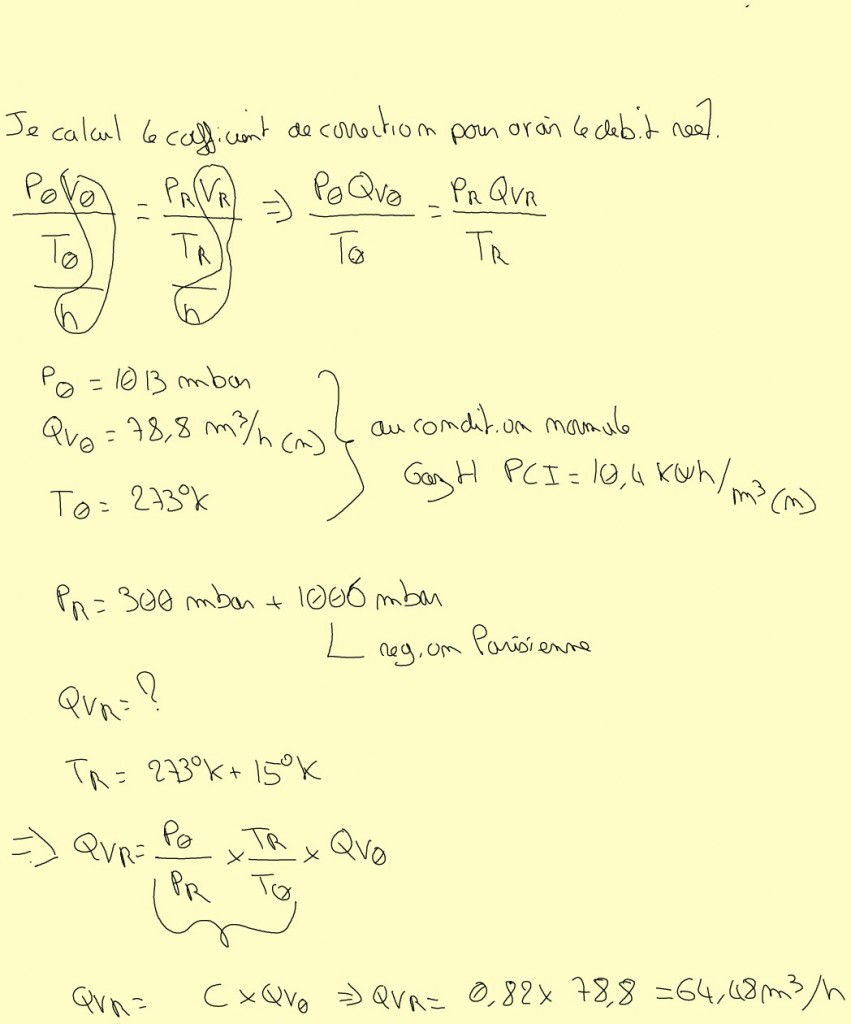 Je calcul le cofficient de correction pour avoir le debit reel.
PØVØ/TØ/h = PRVR/TR/h ⇒ PØQVØ/TØ = PRQVR/TR
PØ = 1Ø13 mbar
QVØ = 78,8 m³/h (n)
TØ = 273°K
au condition normale
Gaz H PCI = 1Ø,4 KWh/m³(n)
PR = 3ØØ mbar + 1ØØ6 mbar
region Parisienne
QVR = ?
TR = 273°K + 15°K
⇒ QVR = PØ/PR × TR/TØ × QVØ
QVR = C × QVØ ⇒ QVR = Ø,82 × 78,8 = 64,48 m³/h